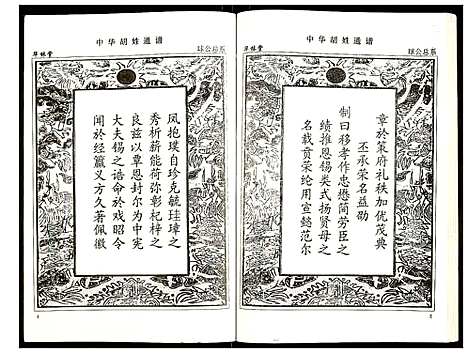 中华胡姓通谱
系总公球
章於策府礼秩加优茂典
丕承荣名益勋
制曰移孝作忠懋简劳臣之
绩推恩锡类式扬贤母之
名载贲荣纶用宣懿范尔
中华胡姓通谱
草林堂
凤抱璞自珍克毓珪璋之
秀析薪能荷弥彰杞梓之
良兹以覃恩封尔为中宪
大夫锡之诰命於戏昭令
闻於经籝义方久著佩徽